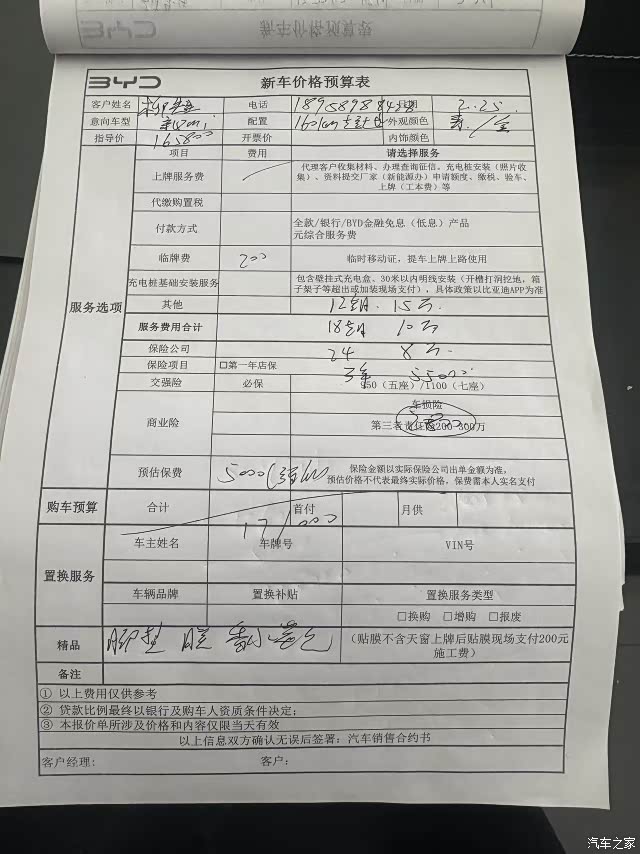 新车价格预算表
BYD 新车价格预算表
客户姓名 电话 日期 2.25.
意向车型 配置 160km 外观颜色
指导价 165800 开票价 内饰颜色
项目 费用 请选择服务
上牌服务费 代理客户收集材料、办理查询征信、充电桩安装(照片收
集)、资料提交厂家(新能源办)申请额度、缴税、验车、
上牌(工本费)等
代缴购置税
付款方式 全款/银行/BYD金融免息(低息)产品
元综合服务费
临牌费 200 临时移动证,提车上牌上路使用
充电桩基础安装服务 包含壁挂式充电盒、30米以内明线安装(开槽打洞挖地,箱
子架子等超出或加装现场支付),具体政策以比亚迪APP为准
服务选项
其他 12期 15万
服务费用合计 18期 10万
保险公司 24 8万
保险项目 □第一年店保 3年 55000
交强险 必保 950(五座)/1100(七座)
商业险 车损险
第三者责任险200-300万
预估保费 5000 保险金额以实际保险公司出单金额为准,
预估价格不代表最终实际价格,保费需本人实名支付
购车预算 合计 171000 首付 月供
车主姓名 车牌号 VIN号
置换服务
车辆品牌 置换补贴 置换服务类型
□换购 □增购 □报废
精品 脚垫 膜 (贴膜不含天窗上牌后贴膜现场支付200元
施工费)
备注
① 以上费用仅供参考
② 贷款比例最终以银行及购车人资质条件决定;
③ 本报价单所涉及价格和内容仅限当天有效
以上信息双方确认无误后签署:汽车销售合约书
客户经理: 客户:
汽车之家